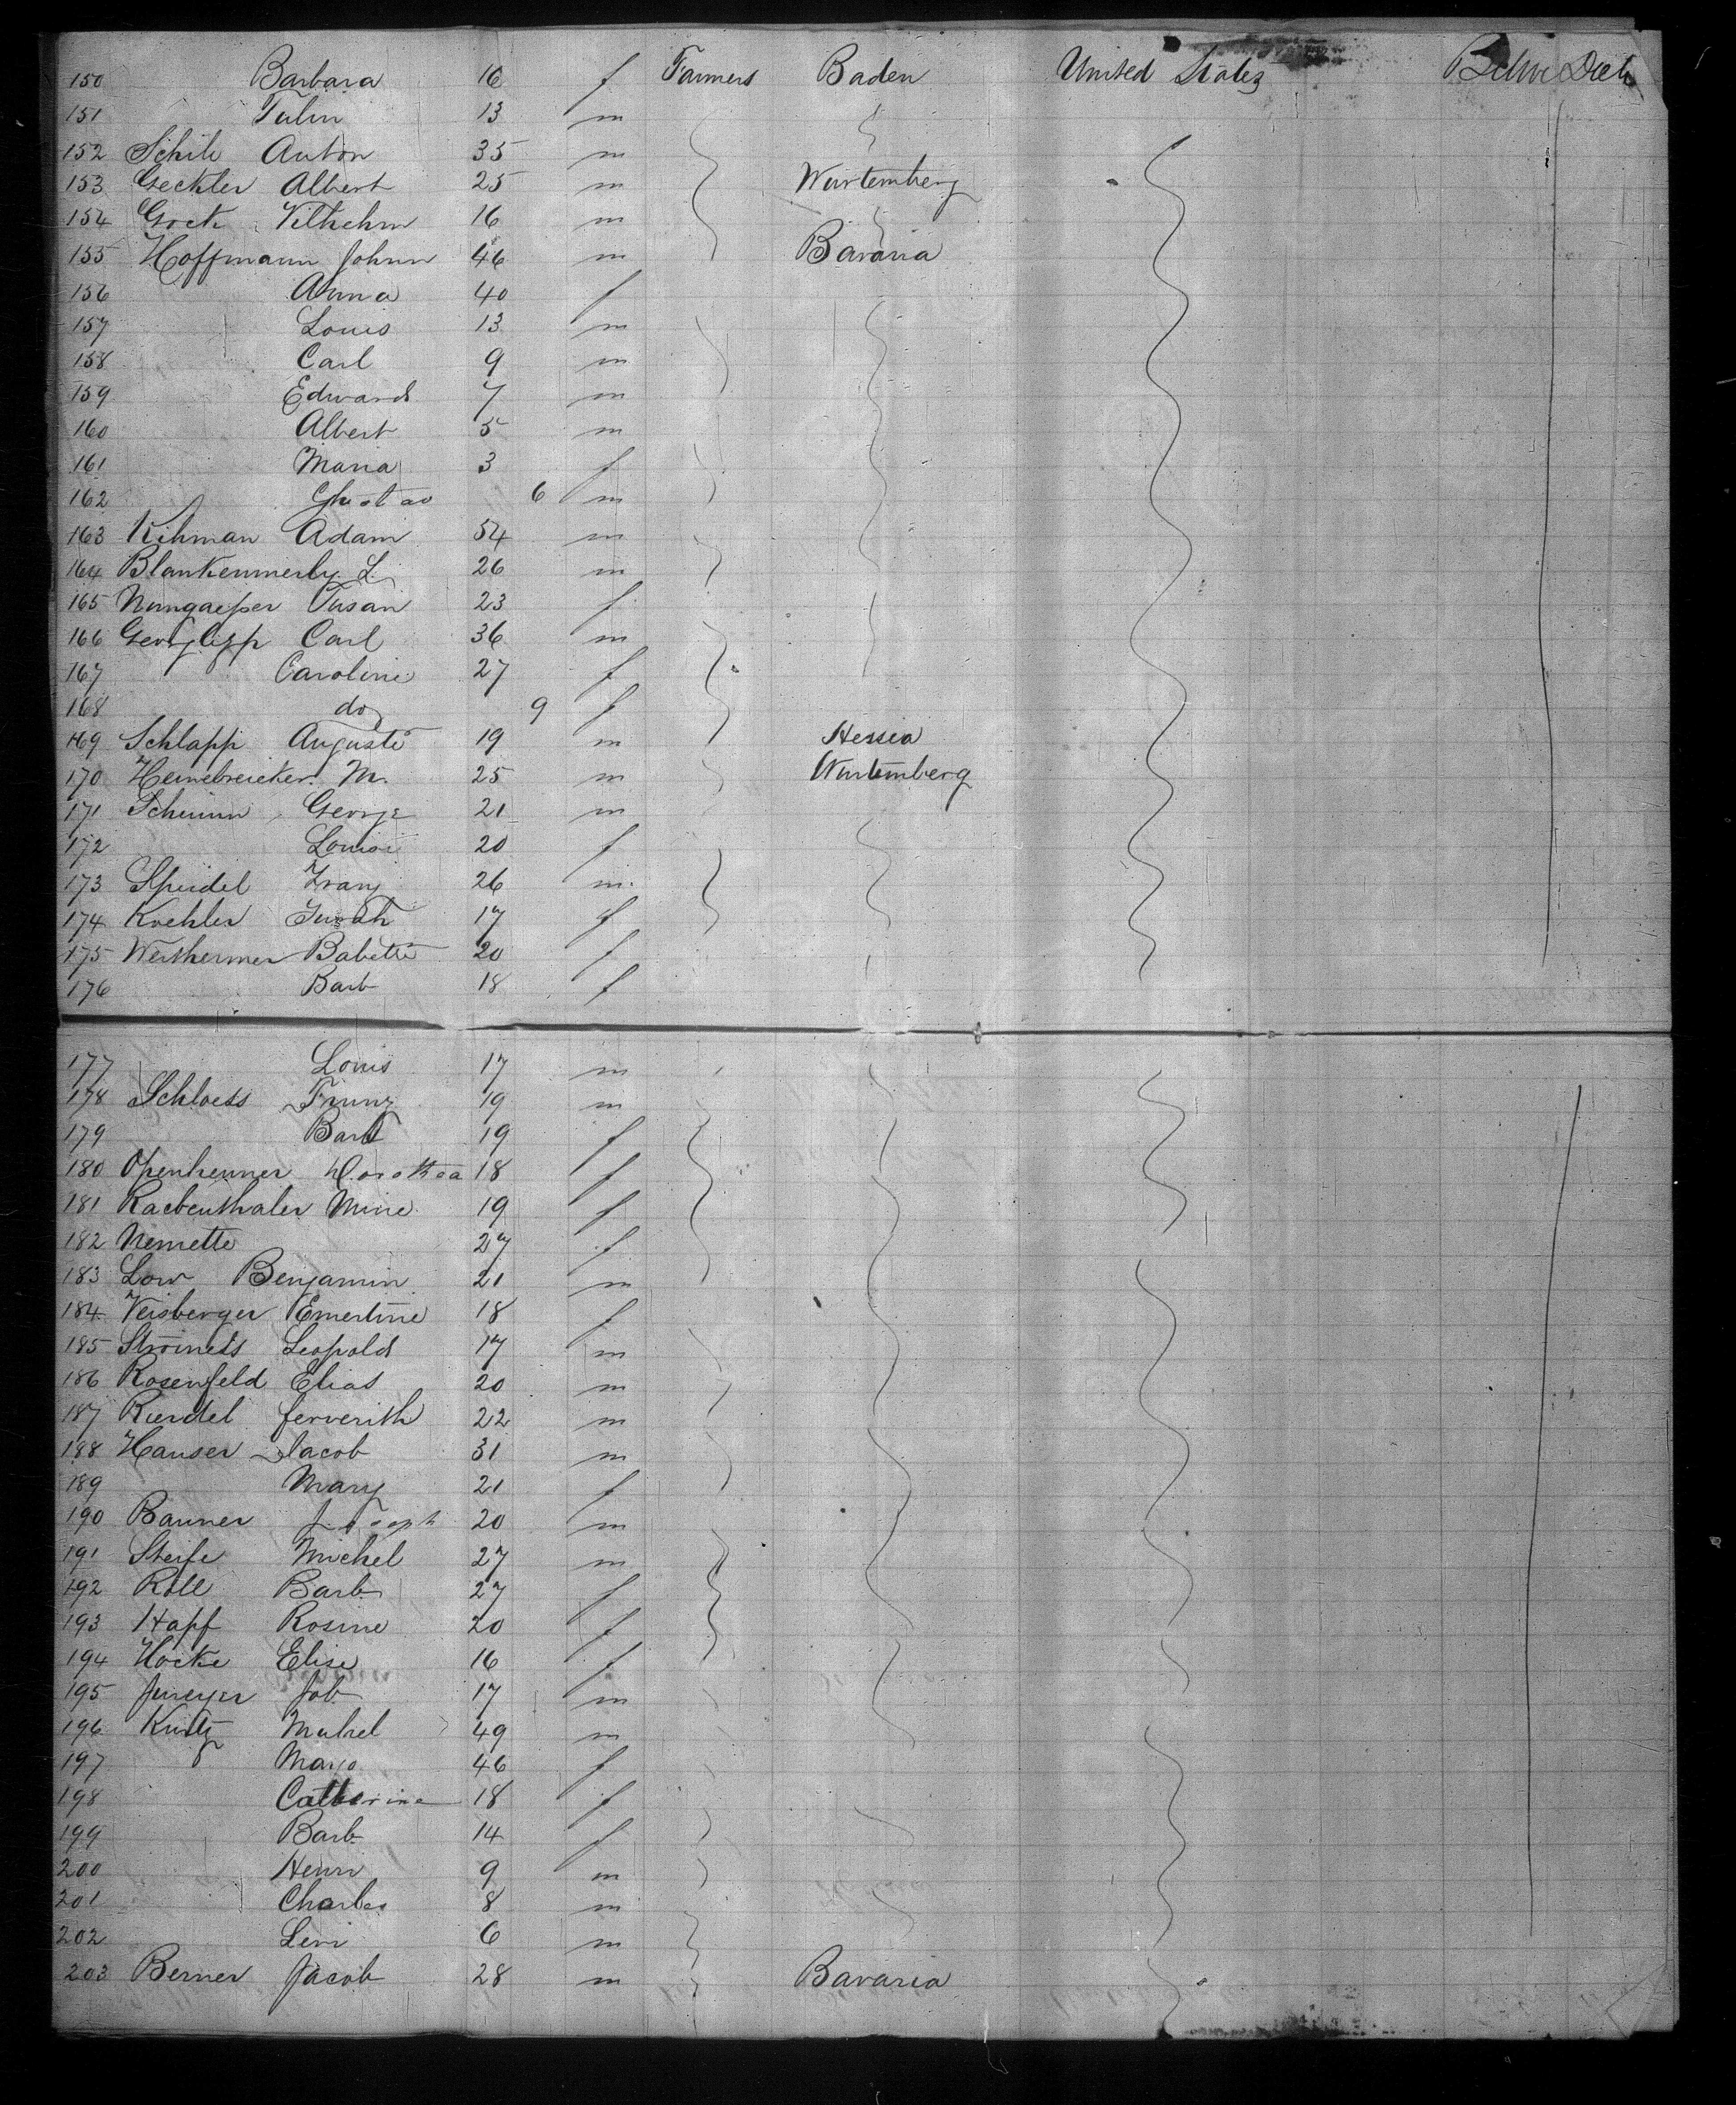 150 Barbara 16 f Farmers Baden United States
151 13 m
152 Anton 35 m
153 Geckler Albert 25 m Wurtemberg
154 Gock Vilhelm 16 m
155 Hoffmann Johnn 46 m Bavaria
156 Anna 40 f
157 Louis 13 m
158 Carl 9 m
159 Edward 7 m
160 Albert 5 m
161 Maria 3 f
162 6 m
163 Kihman Adam 54 m
164 L. 26 m
165 Susan 23 f
166 Carl 36 m
167 Caroline 27 f
168 do 9 f
169 Schlapp Auguste 19 m Hessia
170 M. 25 m Wurtemberg
171 George 21 m
172 Louise 20 f
173 Speidel Franz 26 m
174 Koehler 17 f
175 Babette 20 f
176 Barb 18 f
177 Louis 17 m
178 Schloess 19 m
179 Barb 19 f
180 Openheimer Dorothea 18 f
181 Mine 19 f
182 Nemette 27 f
183 Low Benjamin 21 m
184 Veisberger Ernestine 18 f
185 Leopold 17 m
186 Rosenfeld Elias 20 m
187 22 m
188 Hauser Jacob 31 m
189 Mary 21 f
190 Banner Joseph 20 m
191 Steife Michel 27 m
192 Roll Barb 27 f
193 Hapf Rosine 20 f
194 Hocke Elise 16 f
195 Job 17 m
196 49 m
197 Mary 46 f
198 Catherine 18 f
199 Barb 14 f
200 Henri 9 m
201 Charles 8 m
202 Levi 6 m
203 Berner Jacob 28 m Bavaria